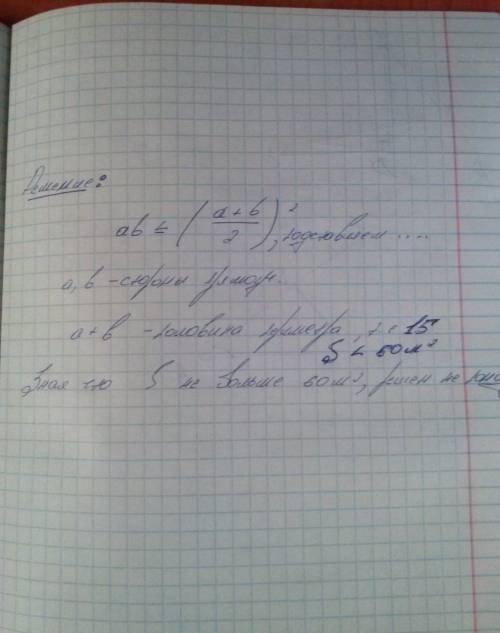 Решение:
ab ≤ (a+b/2)², подставляем ....
a, b - стороны прямоуг...
a+b - половина периметра, т.е 15
S < 60 м²
Зная что S не больше 60 м², решен не